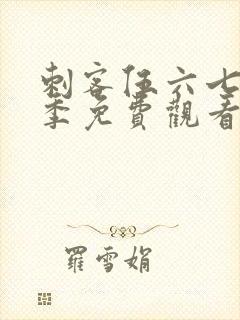 刺客伍六七
季免費觀看
羅雪娟